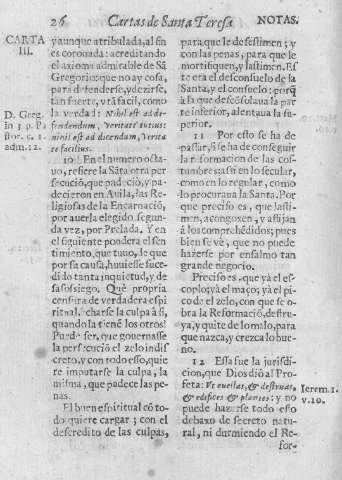 26
Cartas de Santa Teresa
NOTAS.
CARTA
III.
y aunque atribulada, al fin
es coronada: acreditando
el axioma admirable de Sã
Gregorio: que no ay cosa,
para defenderse, y dezirse,
tan fuerte, y tã facil, como
la verdad: Nihil est ad de-
fendendum, veritate tutius:
nihil est ad dicendum, verita-
te facilius.
D. Greg.
in 3. p. Pa
stor. c. 1.
adm. 12.
10 En el numero octa-
uo, refiere la Sãta otra per
secució, que padeció, y pa-
decieron en Auila, las Re-
ligiosas de la Encarnació,
por auerla elegido segun-
da vez, por Prelada. Y en
el siguiente pondera el sen
timiento, que tuuo, le que
por su causa, huuiesse suce-
dido tanta inquietud, y de
sasossiego. Què propria
censura de verdadera espi
ritual, echarse la culpa à si,
quando la tienê los otros!
Puede ser, que gouernasse
la persecució el zelo indis
creto, y con todo esso, quie
re imputarse la culpa, la
misma, que padece las pe-
nas.
El buen espiritual cõ to-
do quiere cargar; con el
descredito de las culpas,
para que le desestimen; y
con las penas, para que le
mortifiquen, y lastimen. Es
te era el desconsuelo de la
Santa, y el consuelo: porq̃
à la que desconsolaua la par
te inferior, alentaua la su-
perior.
11 Por esto se ha de
passar, si se ha de conseguir
la reformacion de las cos-
tumbres: assi en lo secular,
como en lo regular, como
lo procuraua la Santa. Por
que preciso es, que lasti-
men, acongoxen, y aflijan
á los comprehẽdidos; pues
bien se vè, que no puede
hazerse por ensalmo tan
grande negocio.
Preciso es, que yà el es-
coplo; yà el maço; yà el pi-
co de zelo, con que se o-
bra la Reformació, destru-
ya, y quite de lo malo, para
que nazca, y crezca lo bue-
no.
12 Essa fue la jurisdi-
cion, que Dios dió al Pro-
feta: Vt euellas, & destruas,
& edifices & plantes: y no
puede hazerse todo esto
debaxo de secreto natu-
ral, ni durmiendo el Re-
for-
Ierem. 1.
v. 10.